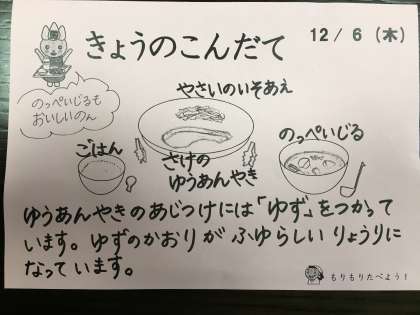 きょうのこんだて
12/6(木)
のっぺいじるも
おいしいのん
やさいのいそあえ
ごはん
さけの
ゆうあんやき
のっぺいじる
ゆうあんやきのあじつけには「ゆず」をつかって
います。ゆずのかおりがふゆらしいりょうりに
なっています。
もりもりたべよう!